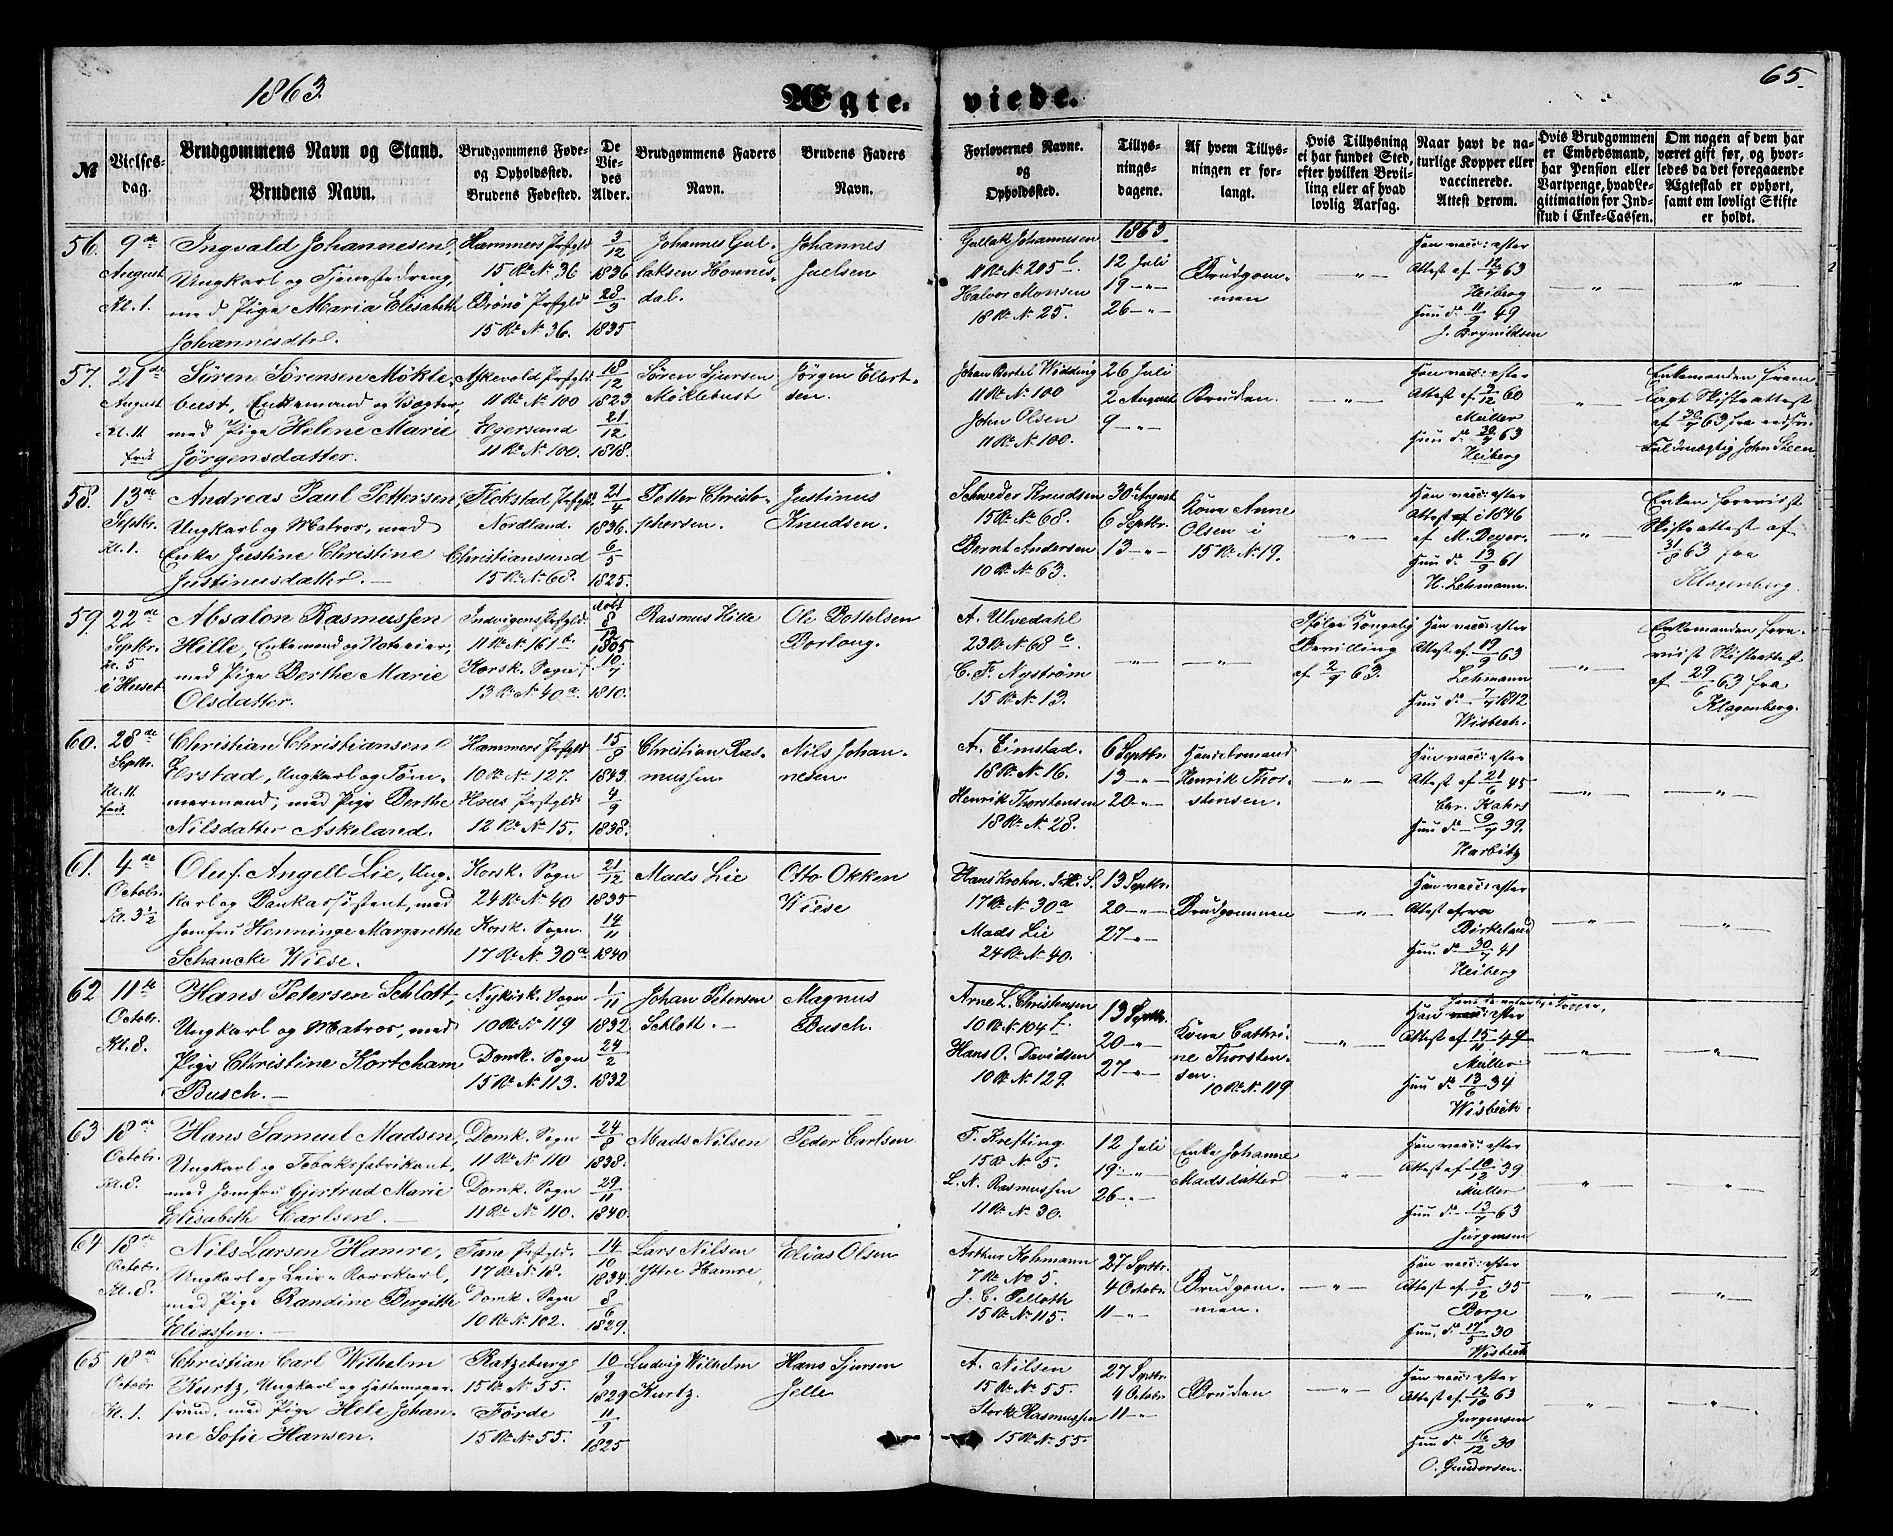 1863.
Ægteviede.
65.
№
Vielses-dag.
Brudgommens Navn og Stand.
Brudens Navn.
Brudgommens Føde-
og Opholdssted.
Brudens Fødested.
De
Vie-
des
Alder.
Brudgommens Faders
Navn.
Brudens Faders
Navn.
Forlovernes Navne.
og
Opholdssted.
Tillys-
nings-
dagene.
Af hvem Tillys-
ningen er for-
langt.
Hvis Tillysning
ei har fundet Sted,
efter hvilken Bevil-
ling eller af hvad
lovlig Aarsag.
Naar havt de na-
turlige Kopper eller
vaccinerede.
Attest derom.
Hvis Brudgommen
er Embedsmand,
har Pension eller
Vartpenge, hvad Le-
gitimation for Ind-
skud i Enke-Cassen.
Om nogen af dem har
været gift før, og hvor-
ledes da det foregaaende
Ægteskab er ophørt,
samt om lovligt Skifte
er holdt.
56. 9de August Kl. 1.
Ingvald Johannesen,
Ungkarl og Tjenestedreng,
med Pige Maria Elisabeth
Johannesdtr.
Hammers Prstgjld
15 Rd. N. 36
Brönö Prstgjld
15 Rd. N. 36.
3/12 1836
28/3 1835
Johannes Gul-
laksen Honnes-
dal.
Johannes
Juelsen
Gullak Johannesen
11 Rd. N. 205 b.
Halvor Monsen
18 Rd. N. 25.
1863
12 Juli
19 — „ —
26 — „ —
Brudgom-
men
— „ —
Han vacc: efter
Attest af 12/7 63
Heiberg
Hun d. 11/9 49
J. Brynildsen
— „ —
— „ —
57. 21de August Kl. 11. frit
Sören Sörensen Mökle-
bust, Enkemand og Vægter,
med Pige Helene Marie
Jörgensdatter.
Askevold Prstgjld
11 Rd. N. 100
Egersund
11 Rd. N. 100.
18/12 1823
21/12 1818.
Sören Sjursen
Möklebust
Jörgen Ellert-
sen.
Johan Bertel Widding
11 Rd. N. 100
John Olsen
11 Rd. N. 100.
26 Juli
2 August
9 — „ —
Bruden.
— „ —
Han vacc: efter
Attest af 2/12 60
Müller
Hun d. 30/7 63
Heiberg
— „ —
Enkemanden frem-
lagt Skifteattest
af 30/7 63 fra
Fuldmægtig John Steen
58. 13de Septbr. Kl. 1.
Andreas Paul Pettersen,
Ungkarl og Matros, med
Enke Justine Christine
Justinusdatter. —
Flakstad Prstgjld.
Nordland.
Christiansund
15 Rd. N. 68.
21/4 1836.
6/5 1825.
Petter Christo-
phersen.
Justinus
Knudsen.
Schweder Knudsen
15 Rd. N. 68.
Bernt Andersen
10 Rd. N. 63.
30te August
6 Septbr.
13 — „ —
Kone Anne
Olsen i
15 Rd. N. 19.
— „ —
Han vacc: efter
Attest af i 1846
af M. Beyer.
Hun d. 13/9 61
H. Lehmann.
— „ —
Enken foreviist
Skifteattest af
31/8 63 fra
Klagenberg.
59. 22de Septbr. Kl. 5 i Huset
Absalon Rasmussen
Hille, Enkemand og Notarier,
med Pige Berthe Marie
Olsdatter.
Indvigens Prstgjld.
11 Rd. N. 161 d.
Korsk. Sogn
13 Rd. N. 40 a.
döbt 8/12 1805
10/7 1810.
Rasmus Hille
Ole Bottelsen
Borloug.
A. Ulvedahl
23 Rd. N. 68 c
C. F. Nyström
15 Rd. N. 13.
— „ —
— „ —
Ifölge Kongelig
Bevilling
af 2/9 63.
Han vacc: efter
Attest af 19/9 63
Lehmann
Hun d. 7/7 1812
Wisbech.
— „ —
Enkemanden fore-
viist Skifteattest
af 29/6 63 fra
Klagenberg.
60. 28de Septbr. Kl. 11. frit
Christian Christiansen
Erstad, Ungkarl og Töm-
mermand, med Pige Berthe
Nilsdatter Askeland.
Hammers Prstgjld
10 Rd. N. 127.
Hous Prstgjld
12 Rd. N. 15.
15/8 1843.
4/9 1838.
Christian Ras-
mussen.
Nils Johan-
nesen
A. Eimstad.
18 Rd. N. 16.
Henrik Thorstensen
18 Rd. N. 28.
6 Septbr.
13 — „ —
20 — „ —
Handelsmand
Henrik Thor-
stensen.
— „ —
Han vacc: efter
Attest af 21/6 45
Chr. Kahrs
Hun d. 9/7 39.
Harbitz
— „ —
— „ —
61. 4de Octobr. Kl. 3½
Oluf Angell Lie, Ung-
karl og Bankassistent, med
Jomfru Henninge Margarethe
Schancke Wiese.
Korsk. Sogn
24 Rd. N. 40
Korsk. Sogn.
17 Rd. N. 30 a.
21/12 1835
14/11 1840
Mads Lie
Otto Okken
Wiese
Hans Krohn. J.H. S.
17 Rd. N. 30 a
Mads Lie
24 Rd. N. 40.
13 Septbr.
20 — „ —
27 — „ —
Brudgommen
— „ —
Han vacc: efter
Attest af fra
Birkeland
Hun. d. 30/7 41
Heiberg
— „ —
— „ —
62 11te Octobr. Kl. 8.
Hans Petersen Schlott,
Ungkarl og Matros, med
Pige Christine Kortcham
Busch. —
Nykirk. Sogn
10 Rd. N. 119
Domk. Sogn
15 Rd. N. 113.
1/11 1832
24/2 1832
Johan Petersen
Schlott. —
Magnus
Busch.
Arne L. Christensen
10 Rd. N. 104 f.
Hans O. Davidsen
10 Rd. N. 129.
13 Septbr.
20 — „ —
27 — „ —
Kone Cathri-
ne Thorsten-
sen.
10 Rd. N. 119
— „ —
havt de naturlige Kopper,
Han vacc: efter
Attest af 15/11 49
Müller
Hun d. 13/6 34
Wisbech.
— „ —
— „ —
63 18de Octobr. Kl. 8.
Hans Samuel Madsen,
Ungkarl og Tobaksfabrikant,
med Jomfru Gjertrud Marie
Elisabeth Carlsen. —
Domk. Sogn
11 Rd. N. 110
Domk. Sogn
11 Rd. N. 110.
24/8 1838.
29/11 1840.
Mads Nilsen
Peder Carlsen
F. Krefting
15 Rd. N. 5.
L. N. Rasmussen
11 Rd. N. 30.
12 Juli
19 — „ —
26 — „ —
Enke Johanne
Madsdatter
— „ —
Han vacc: efter
Attest af 10/12 39
Müller
Hun d. 13/7 63
Jurgensen
— „ —
— „ —
64 18de Octobr. Kl. 8.
Nils Larsen Hamre,
Ungkarl og Leie-Karskarl,
med Pige Randine Bergitte
Eliassen. —
Fane Prstgjld.
17 Rd. N. 18.
Domk. Sogn
10 Rd. N. 102.
14/10 1834.
8/6 1829.
Lars Nilsen
Yttre Hamre
Elias Olsen
Arthur Kohmann
7 Rd. No 5.
J. C. Pelloth
15 Rd. N. 115.
27 Septbr.
4 Octobr.
11 — „ —
Brudgom-
men.
— „ —
Han vacc: efter
Attest af 5/12 35
Borge
Hun. d. 17/5 30
Wisbech
— „ —
— „ —
65 18de Octobr Kl. 1.
Christian Carl Wilhelm
Kurtz, Ungkarl og Hattemager-
svend, med Pige Hele Johan-
ne Sofie Hansen.
Ratzeburg
15 Rd. N. 55.
Förde
15 Rd. N. 55.
10/9 1829
11/9 1825
Ludvig Wilhelm
Kurtz.
Hans Sjursen
Jelle
A. Nilsen
15 Rd. N. 55.
Stork Rasmussen
15 Rd. N. 55.
27 Septbr.
4 Octobr.
11 — „ —
Bruden
— „ —
Han vacc: efter
Attest af 12/10 63
Jurgensen
Hun d. 16/12 30
O. Gundersen.
— „ —
— „ —